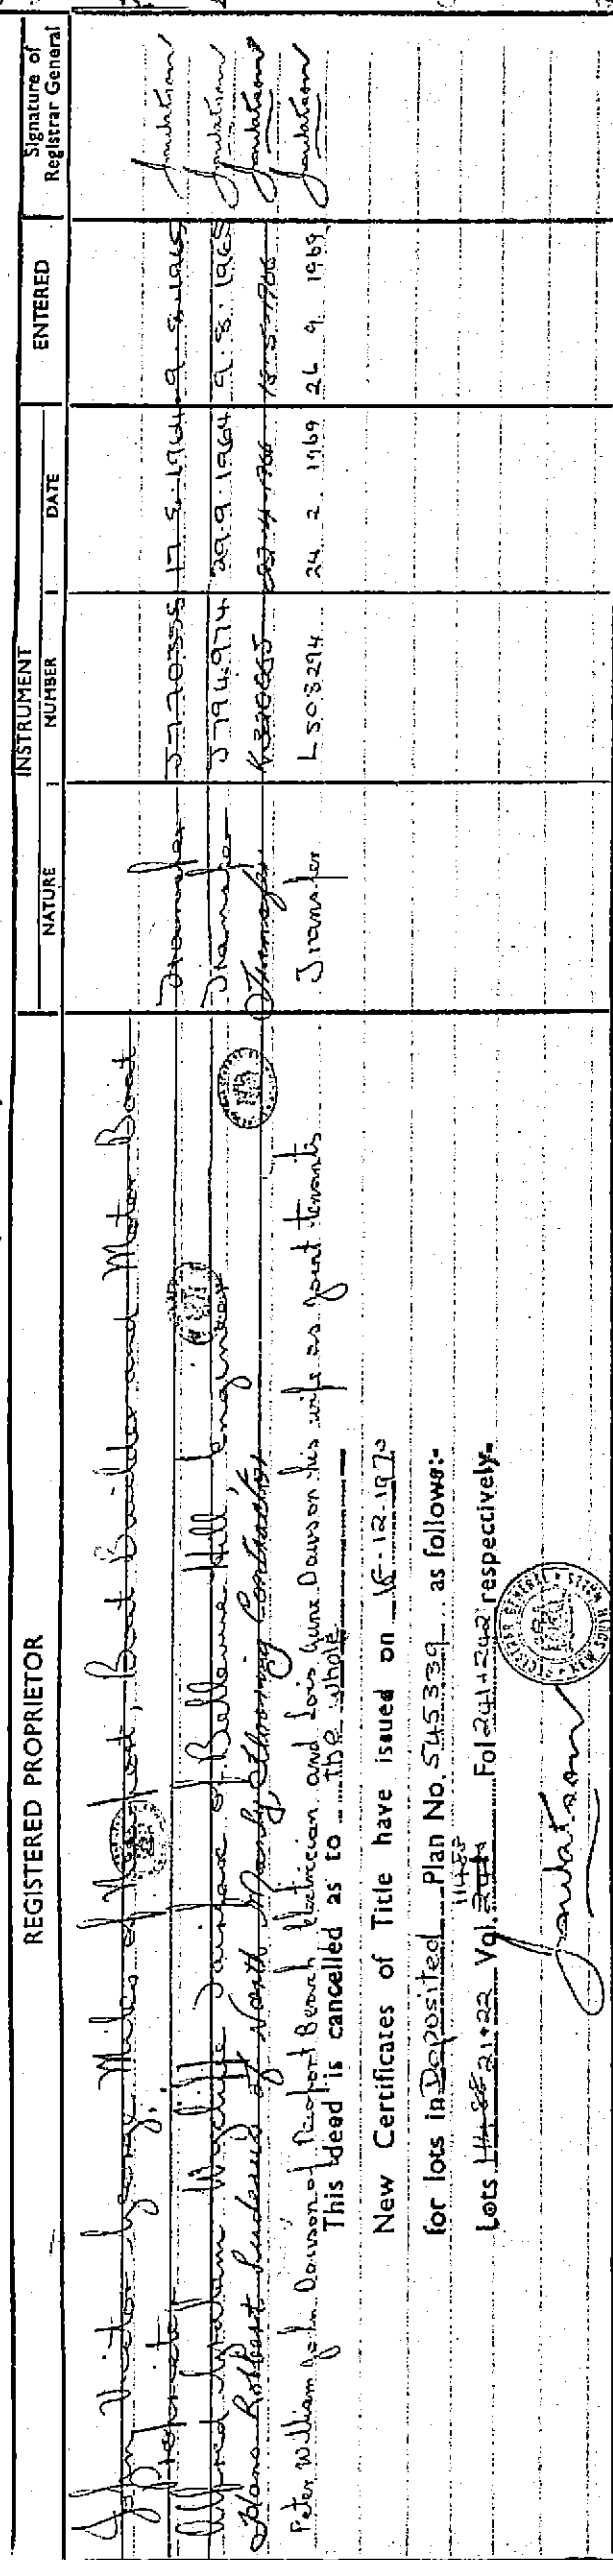 REGISTERED PROPRIETOR
INSTRUMENT
NATURE NUMBER DATE
ENTERED
Signature of
Registrar General
John Victor George Miles of Newport, Boat Builder and Motor Boat
Proprietor Transfer J770555 17.5.1964 9.8.1965 Jawatson
Alfred Graham Wycliffe of Bellevue Hill, Engineer Transfer J794974 29.9.1964 9.8.1965 Jawatson
Hans Robert of North Manly Contractor Transfer 18-5-1966 Jawatson
Peter William John Dawson of Newport Beach Electrician and Lois June Dawson his wife as joint tenants Transfer L503294 24.2.1969 26.9.1969 Jawatson
This deed is cancelled as to the whole
New Certificates of Title have issued on 15-12-1970
for lots in Deposited Plan No. 545339 as follows:-
11488
Lots 21+22 Vol. Fol 241+242 respectively.
Jawatson